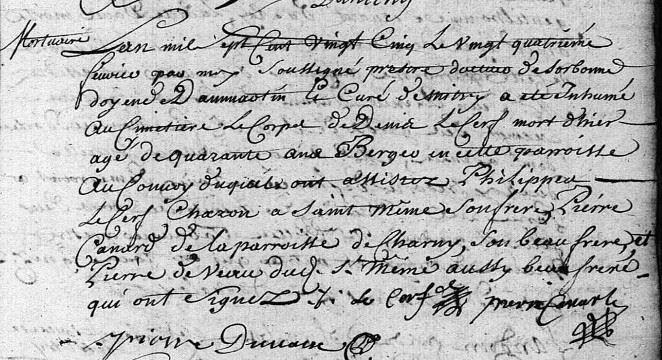 Mortuaire
Lan mil sept Cent vingt Cinq le vingt quatrieme
fevrier par moy soussigné prestre docteur de Sorbonne
doyen de Dammartin et Curé de mitry a eté Inhumé
au Cimetiere le Corps de Denis le Cerf mort d'hier
agé de quarante ans Berger en cette parroisse
au Convoy duquel ont assistez Philippes
le Cerf Charon a Saint même son frere, Pierre
Canard de la parroisse de Charny, son beau frere, et
Pierre de veau dud. St. même aussy beau frere
qui ont signez